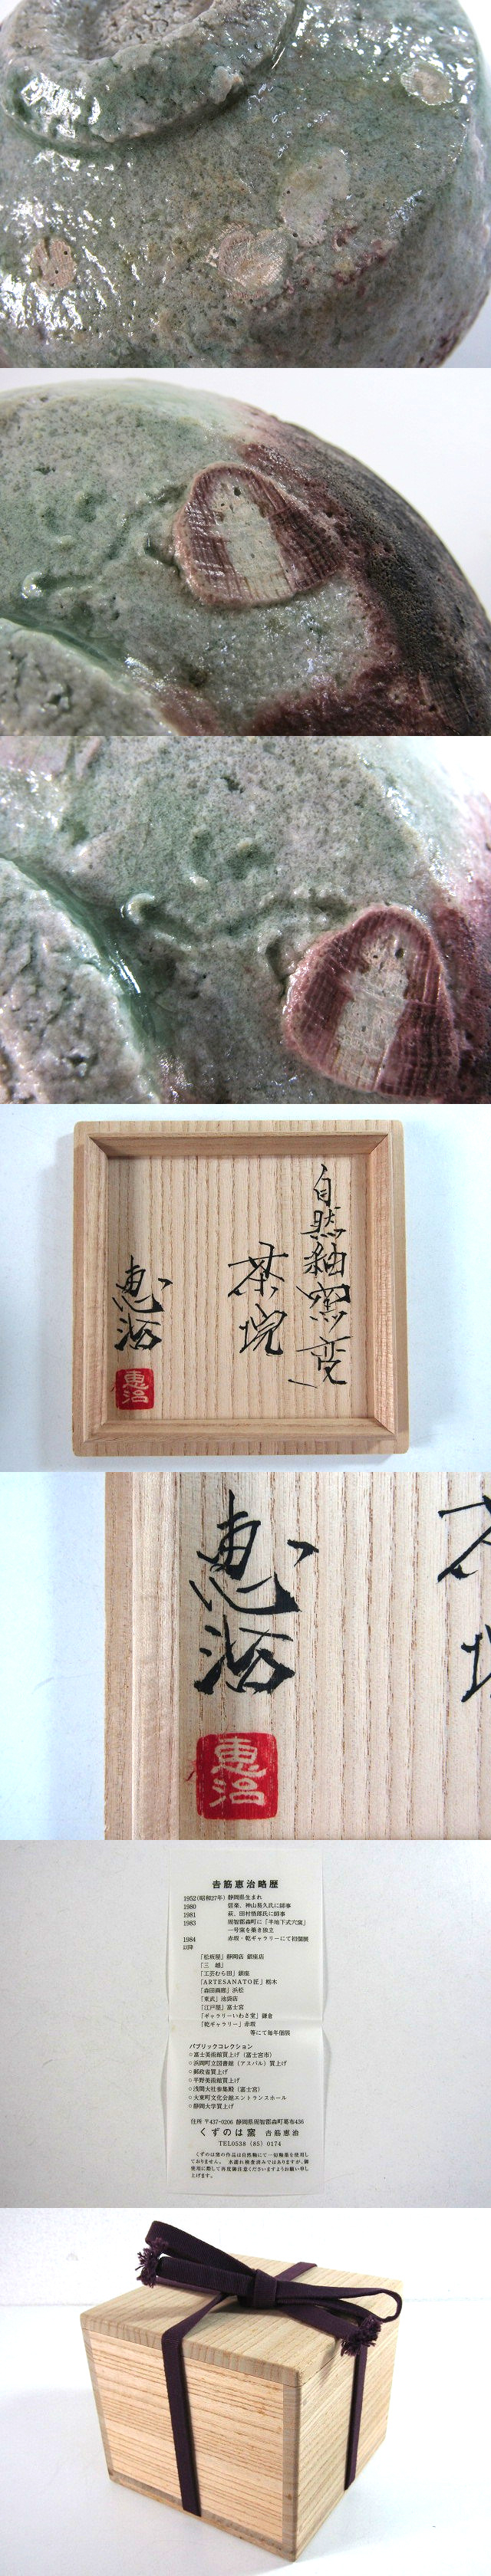 自然釉窯変
茶垸
恵治
恵治
恵治
恵治
吉筋恵治略歴
1952(昭和27年) 静岡県生まれ
1980 信楽、神山易久氏に師事
1981 萩、田村悟朗氏に師事
1983 周智郡森町に「半地下式穴窯」
一号窯を築き独立
1984 赤坂・乾ギャラリーにて初個展
以降
「松坂屋」静岡店 銀座店
「三越」
「工芸むら田」銀座
「ARTESANATO匠」栃木
「森田画廊」浜松
「東武」池袋店
「江戸屋」富士宮
「ギャラリーいわさ堂」鎌倉
「乾ギャラリー」赤坂
等にて毎年個展
パブリックコレクション
○富士美術館買上げ(富士宮市)
○浜岡町立図書館(アスパル)買上げ
○郵政省買上げ
○平野美術館買上げ
○浅間大社参集殿(富士宮)
○大東町文化会館エントランスホール
○静岡大学買上げ
住所 〒437-0206 静岡県周智郡森町葛布436
くずのは窯 吉筋恵治
TEL0538 (85) 0174
くずのは窯の作品は自然釉にて一切釉薬を使用し
ておりません。水漏れ検査済みではありますが、御
使用に際して再度御注意くださいますようお願い申し
上げます。